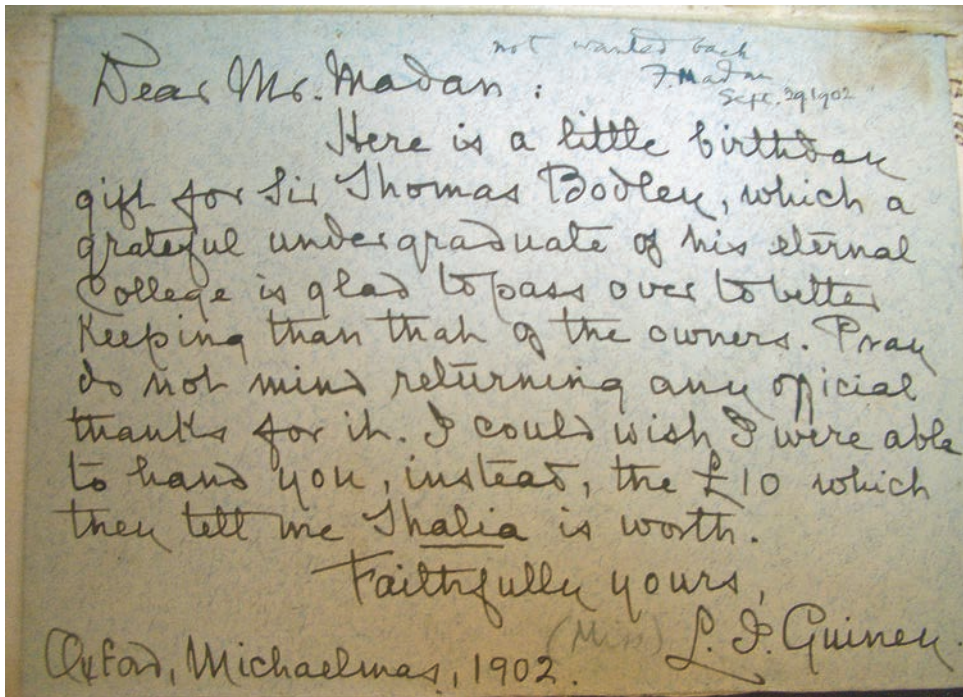 not wanted back
F. Madan
Sept. 29, 1902
Dear Mr. Madan :
Here is a little birthday
gift for Sir Thomas Bodley, which a
grateful undergraduate of his eternal
College is glad to pass over to better
keeping than that of the owners. Pray
do not mind returning any official
thanks for it. I could wish I were able
to hand you, instead, the £10 which
they tell me Thalia is worth.
Faithfully yours,
(Miss) L. I. Guiney.
Oxford, Michaelmas, 1902.